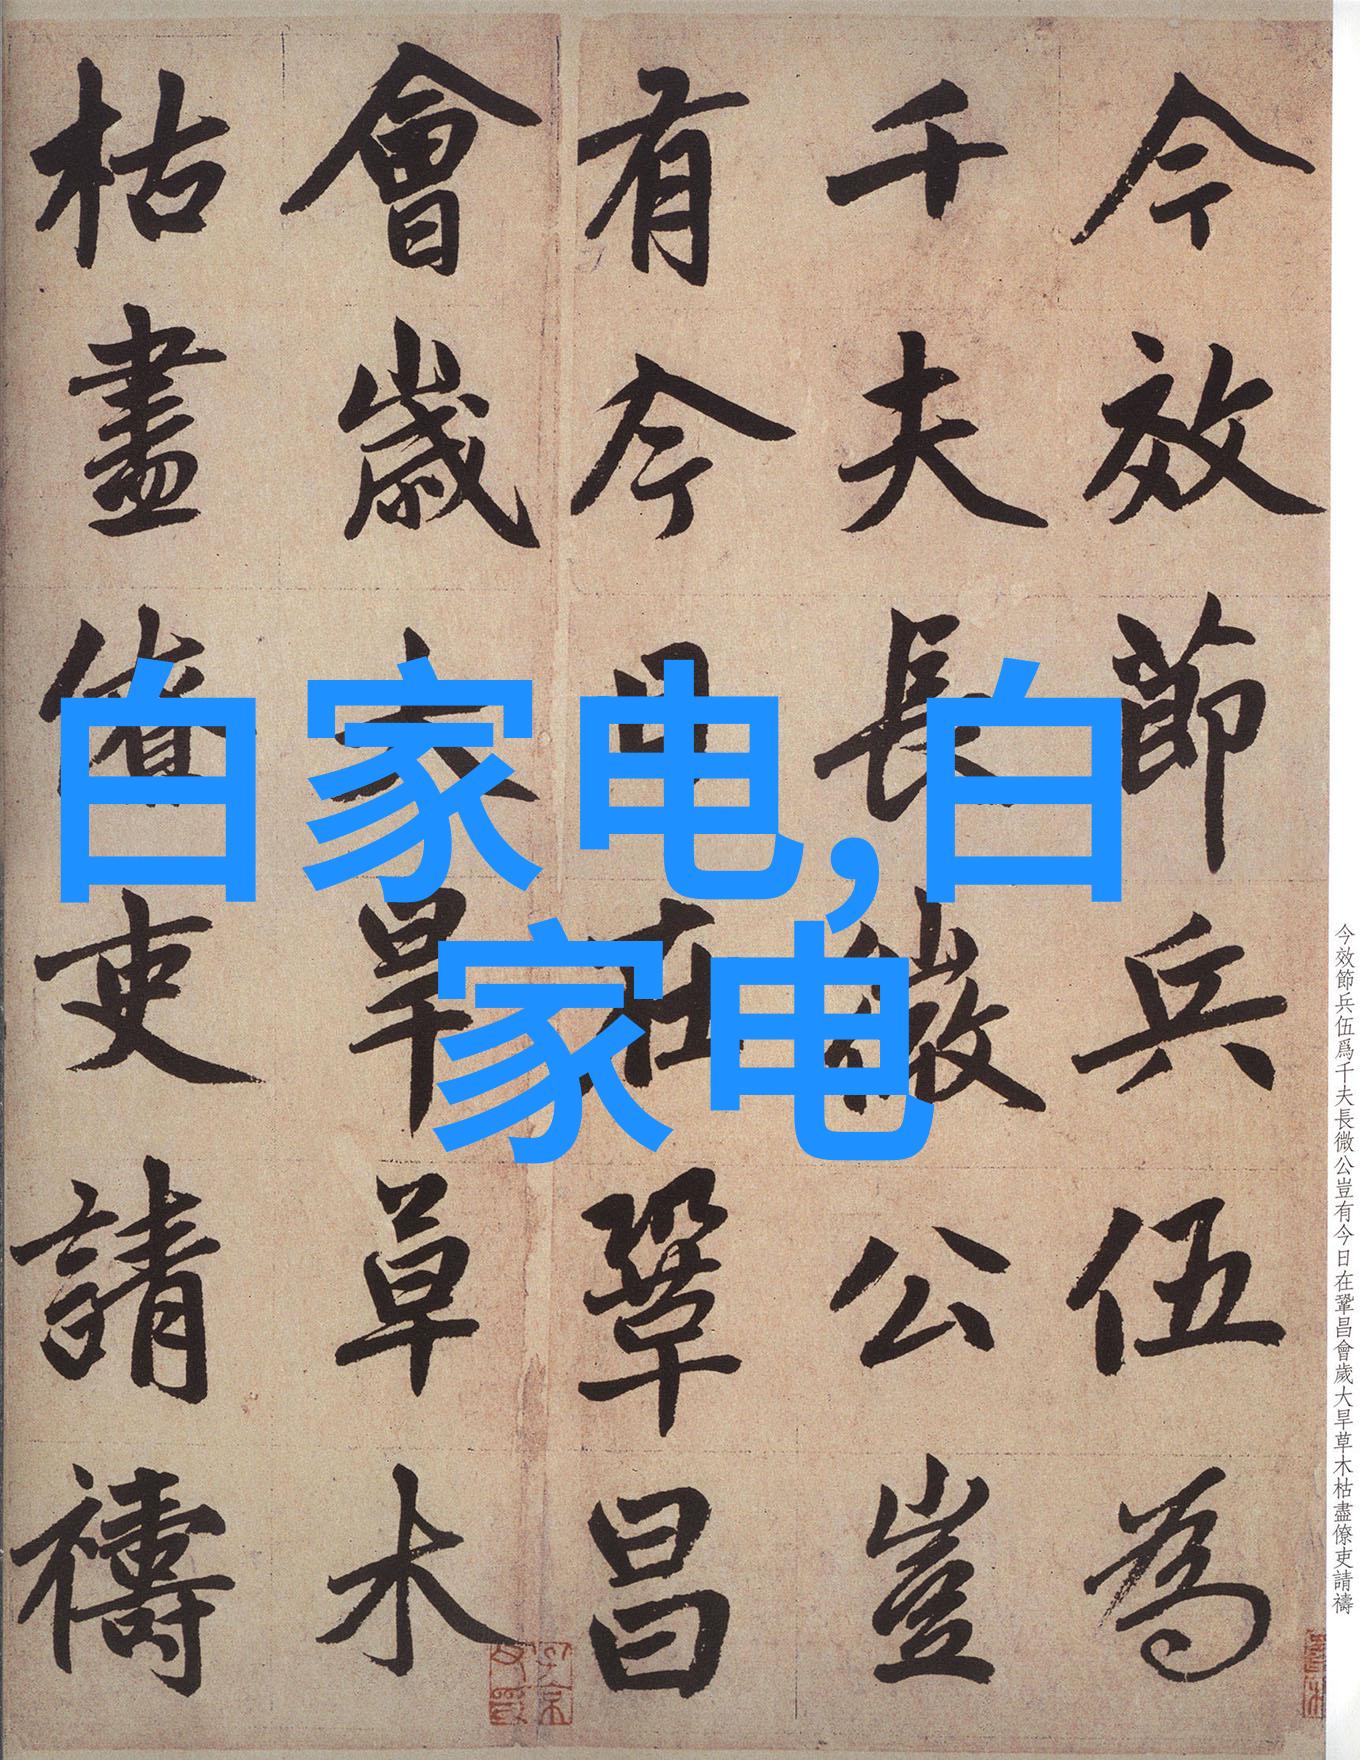 今效節兵伍為
千夫長微公豈
有今日在鞏昌
會歲大旱草木
枯盡僚吏請禱
白家电,白
家电
今效節兵伍爲千夫長微公豈有今日在鞏昌會歲大旱草木枯盡僚吏請禱